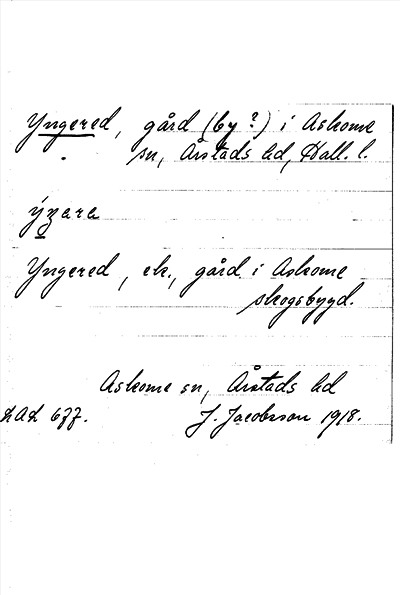 Yngered, gård (by?) i Askome
sn, Årstads hd, Hall. l.
Yngered, ek., gård i Askome
skogsbygd.
Askome sn, Årstads hd
LAL 677. J. Jacobsson 1918.